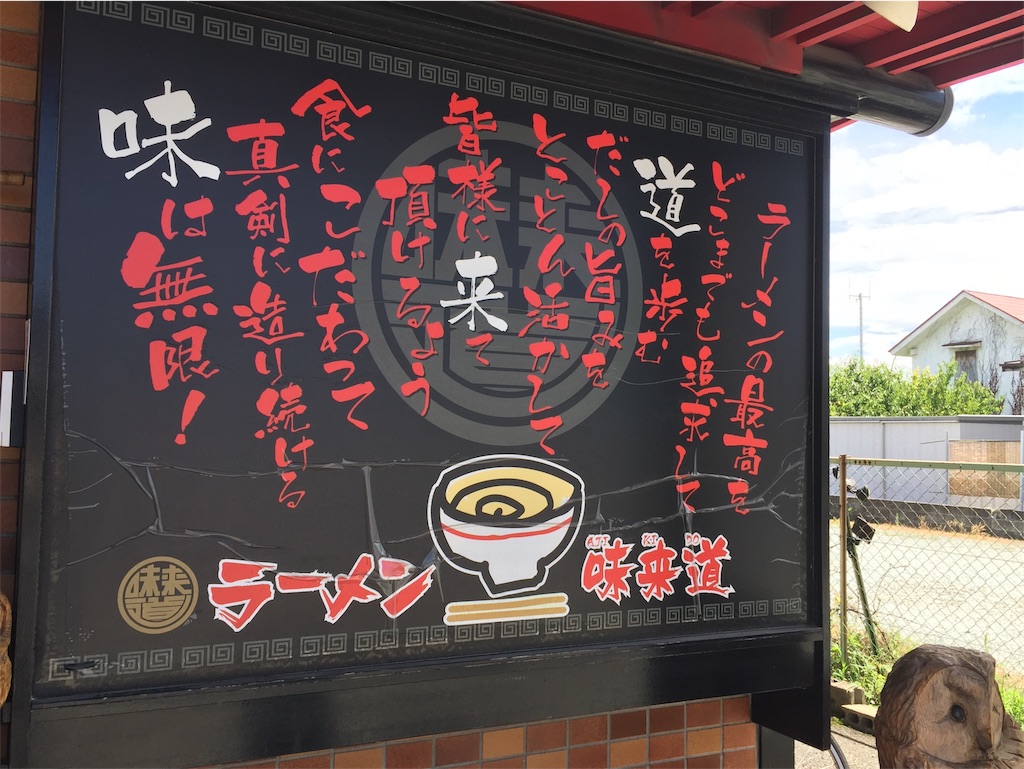 ラーメンの最高を
どこまでも追求して
道を歩む
だしの旨みを
とことん活かして
皆様に来て
頂けるよう
食にこだわって
真剣に造り続ける
味は無限！
味来道
ラーメン
AJI KI DO
味来道